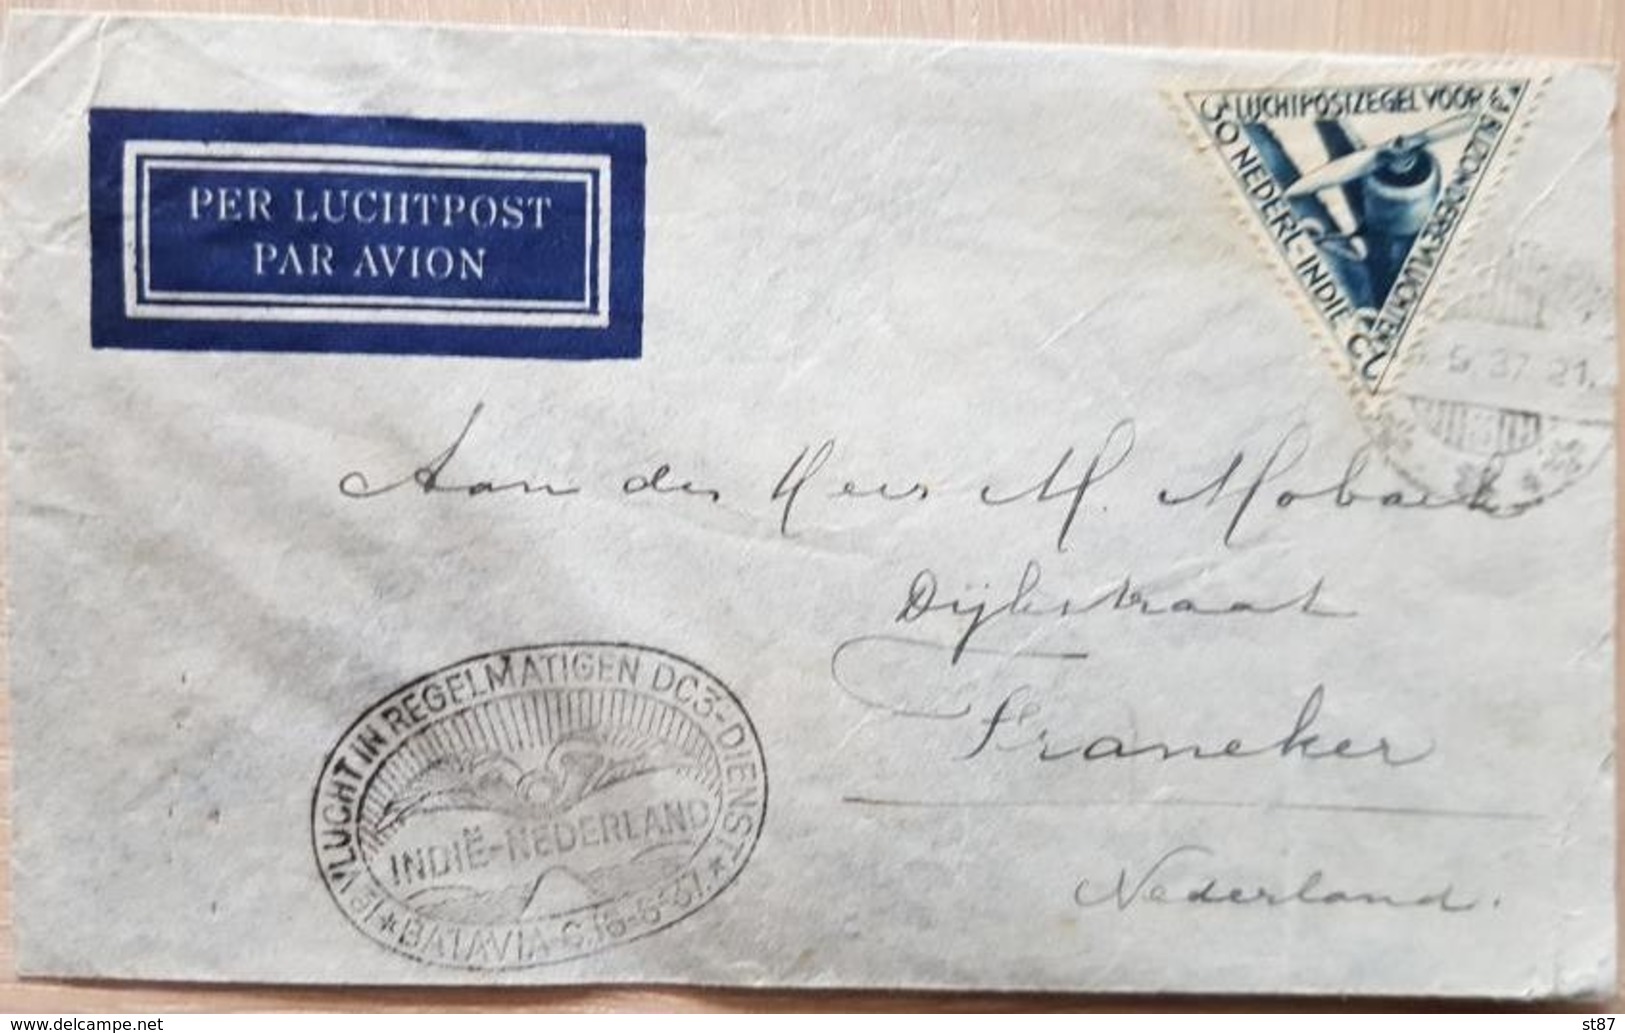 PER LUCHTPOST
PAR AVION
LUCHTPOSTZEGEL VOOR
BIJZONDERE VLUCHTEN
30 NEDERL-INDIE Ct
37 21
Aan den Heer M. Moback
Dijkstraat
Franeker
Nederland.
*1e VLUCHT IN REGELMATIGEN DC3-DIENST*
INDIË-NEDERLAND
BATAVIA-C.
delcampe.net
st87